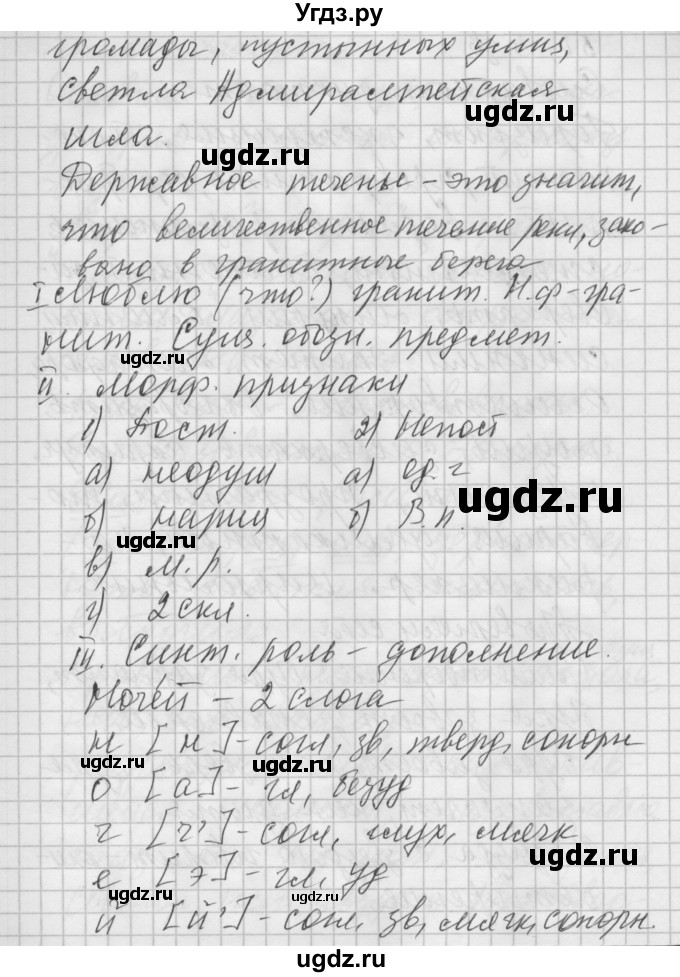 Угдз.ру
громады, пустынных улиц,
светла Адмиралтейская
шла.
ugdz.ru
ugdz.ru
Державное теченье – это значит,
ugdz.ru
что величественное течение реки, зако-
вано в гранитные берега
I Люблю (что?) гранит. Н.ф – гра-
нит. Сущ. обозн. предмет.
ugdz.ru
ugdz.ru
II. Морф. признаки
1) Пост. 2) Непост
а) неодуш а) ед. ч
ugdz.ru
б) нариц б) В.п.
ugdz.ru
в) м.р.
г) 2 скл.
ugdz.ru
III. Синт. роль – дополнение.
Ночéй – 2 слога
н [н] – согл, зв, тверд, сонорн
ugdz.ru
о [а] – гл, безуд
ч [ч'] – согл, глух, мягк
ugdz.ru
е [э] – гл, уд
ugdz.ru
й [й'] – согл, зв, мягк, сонорн.
ugdz.ru
ugdz.ru